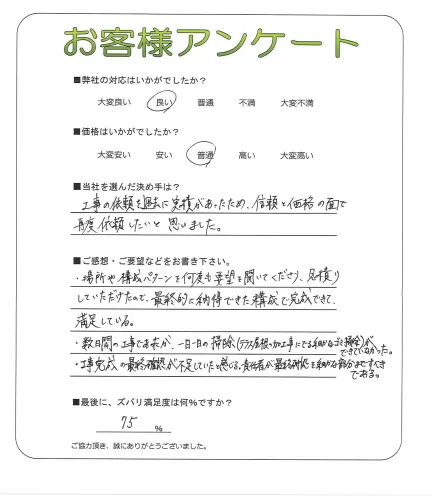 お客様アンケート
■弊社の対応はいかがでしたか？
大変良い 良い 普通 不満 大変不満
■価格はいかがでしたか？
大変安い 安い 普通 高い 大変高い
■当社を選んだ決め手は？
工事の依頼を過去に実積があったため、信頼と価格の面で
再度依頼したいと思いました。
■ご感想・ご要望などをお書き下さい。
・場所や構成パターンを何度も要望を聞いてくださり、見積り
していただけたので、最終的に納得できた構成で完成できて、
満足している。
・数日間の工事であったが、一日一日の掃除(テラス屋根の加工事にでる細かなゴミ掃除)が
できていなかった。
・工事完成の最終確認が不足していたと感じる。責任者が最終確認を細かな部分まですべき
である。
■最後に、ズバリ満足度は何％ですか？
75 ％
ご協力頂き、誠にありがとうございました。